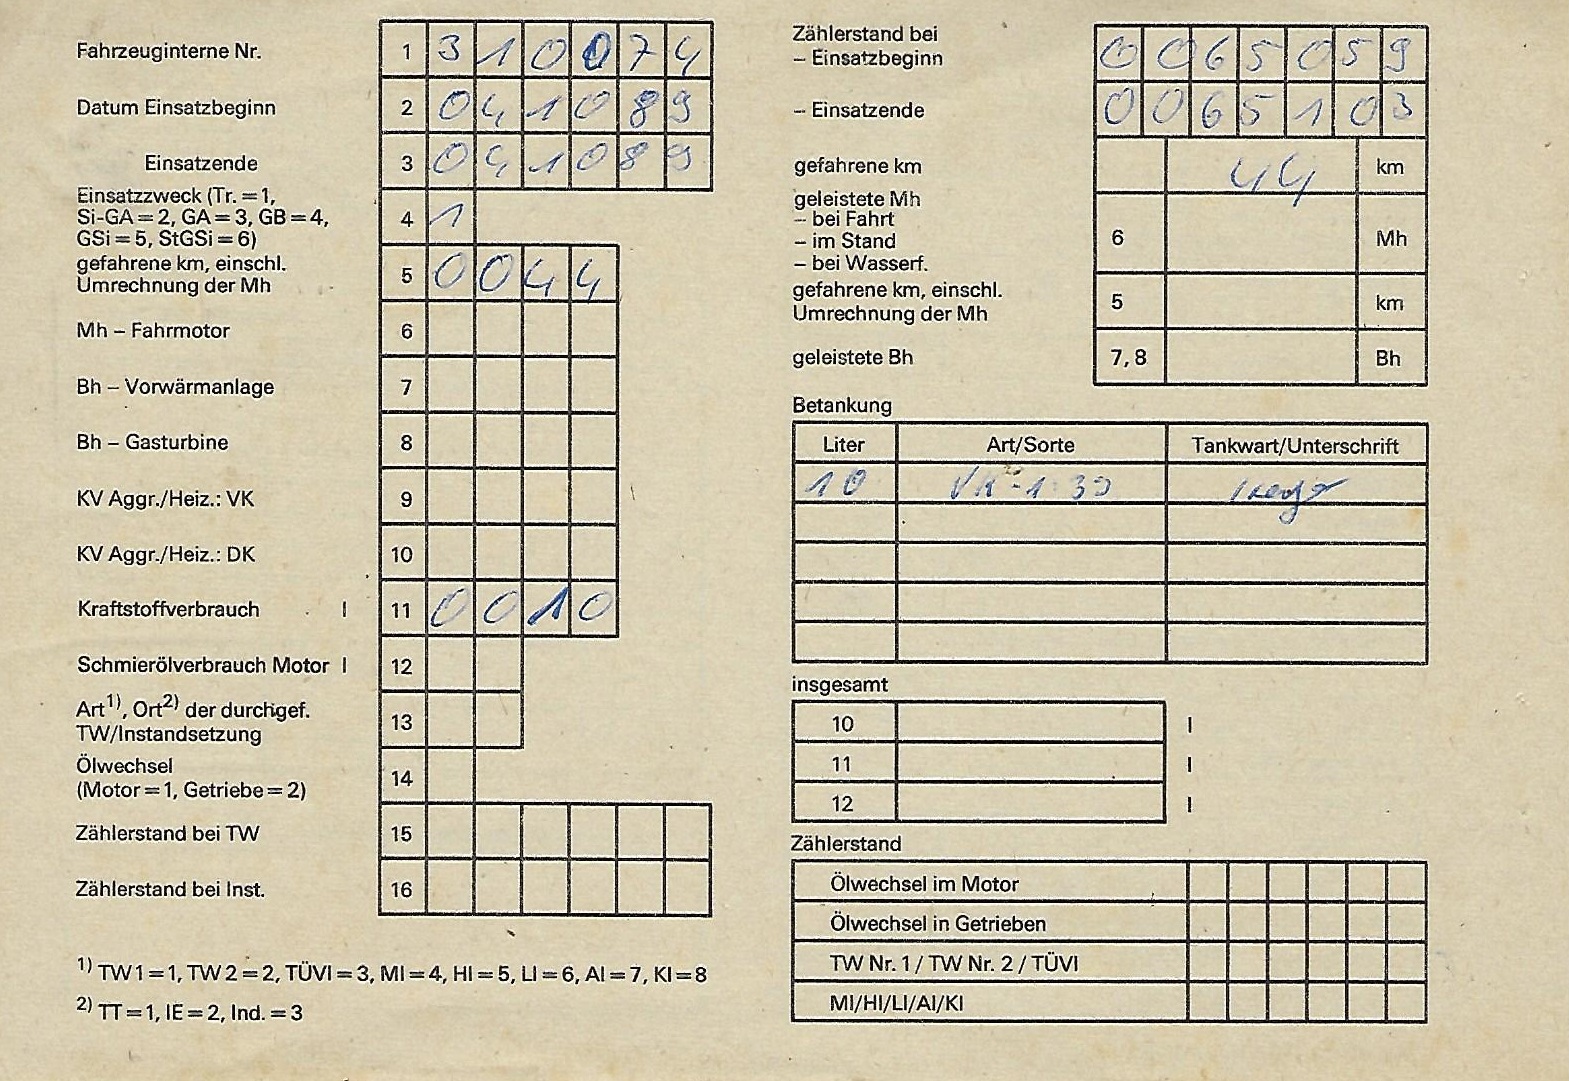 Fahrzeuginterne Nr. 1 3 1 0 0 7 4
Datum Einsatzbeginn 2 0 4 1 0 8 9
Einsatzende 3 0 4 1 0 8 9
Einsatzzweck (Tr. = 1,
Si-GA = 2, GA = 3, GB = 4,
GSi = 5, StGSi = 6) 4 1
gefahrene km, einschl.
Umrechnung der Mh 5 0 0 4 4
Mh – Fahrmotor 6
Bh – Vorwärmanlage 7
Bh – Gasturbine 8
KV Aggr./Heiz.: VK 9
KV Aggr./Heiz.: DK 10
Kraftstoffverbrauch l 11 0 0 1 0
Schmierölverbrauch Motor l 12
Art¹⁾, Ort²⁾ der durchgef.
TW/Instandsetzung 13
Ölwechsel
(Motor = 1, Getriebe = 2) 14
Zählerstand bei TW 15
Zählerstand bei Inst. 16
¹⁾ TW 1 = 1, TW 2 = 2, TÜVI = 3, MI = 4, HI = 5, LI = 6, AI = 7, KI = 8
²⁾ TT = 1, IE = 2, Ind. = 3
Zählerstand bei
– Einsatzbeginn 0 0 6 5 0 5 9
– Einsatzende 0 0 6 5 1 0 3
gefahrene km 44 km
geleistete Mh
– bei Fahrt
– im Stand 6 Mh
– bei Wasserf.
gefahrene km, einschl.
Umrechnung der Mh 5 km
geleistete Bh 7, 8 Bh
Betankung
Liter Art/Sorte Tankwart/Unterschrift
10 VK - 1:30
insgesamt
10 l
11 l
12 l
Zählerstand
Ölwechsel im Motor
Ölwechsel in Getrieben
TW Nr. 1 / TW Nr. 2 / TÜVI
MI/HI/LI/AI/KI